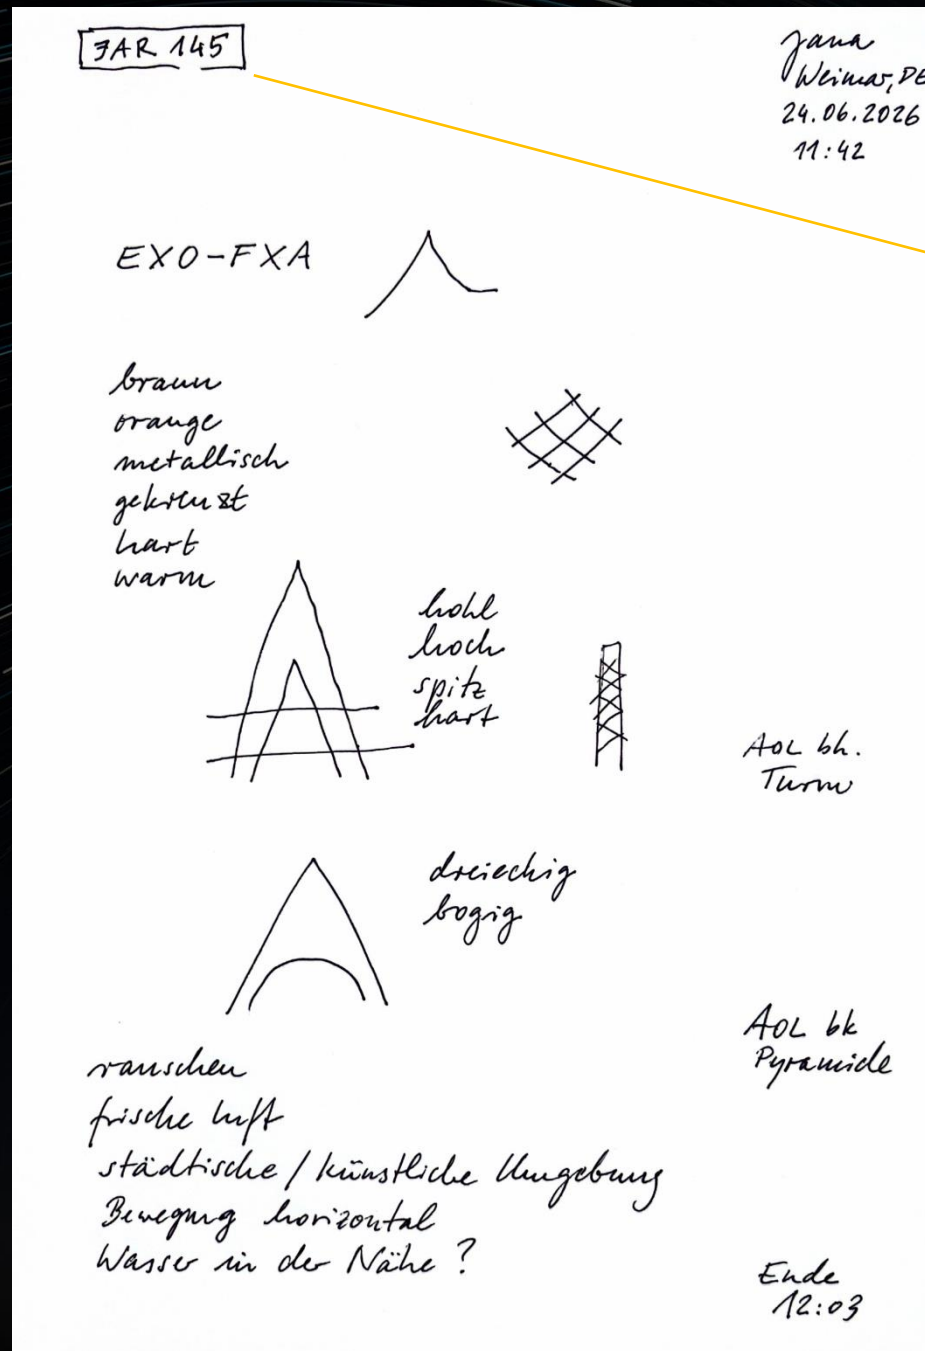 JAR 145
Jana
Weimar, DE
24.06.2026
11:42
EXO-FXA
braun
orange
metallisch
gekreuzt
hart
warm
hohl
hoch
spitz
hart
AOL bk.
Turm
dreieckig
bogig
AOL bk
Pyramide
rauschen
frische Luft
städtische / künstliche Umgebung
Bewegung horizontal
Wasser in der Nähe?
Ende
12:03